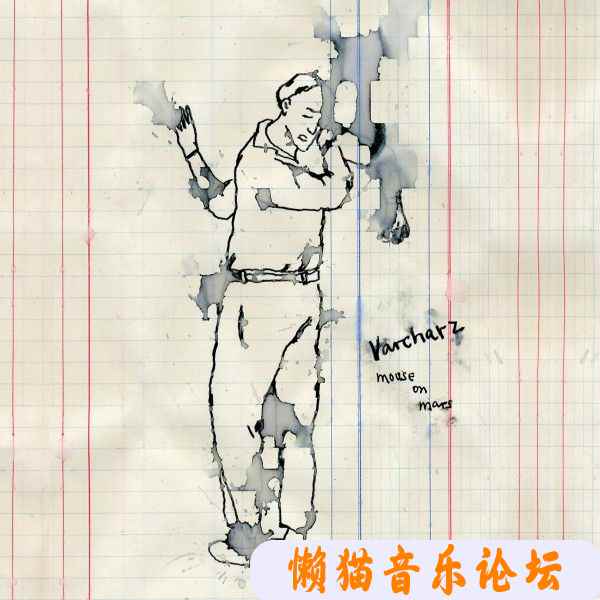 Varcharz
mouse
on
mars
懒猫音乐论坛